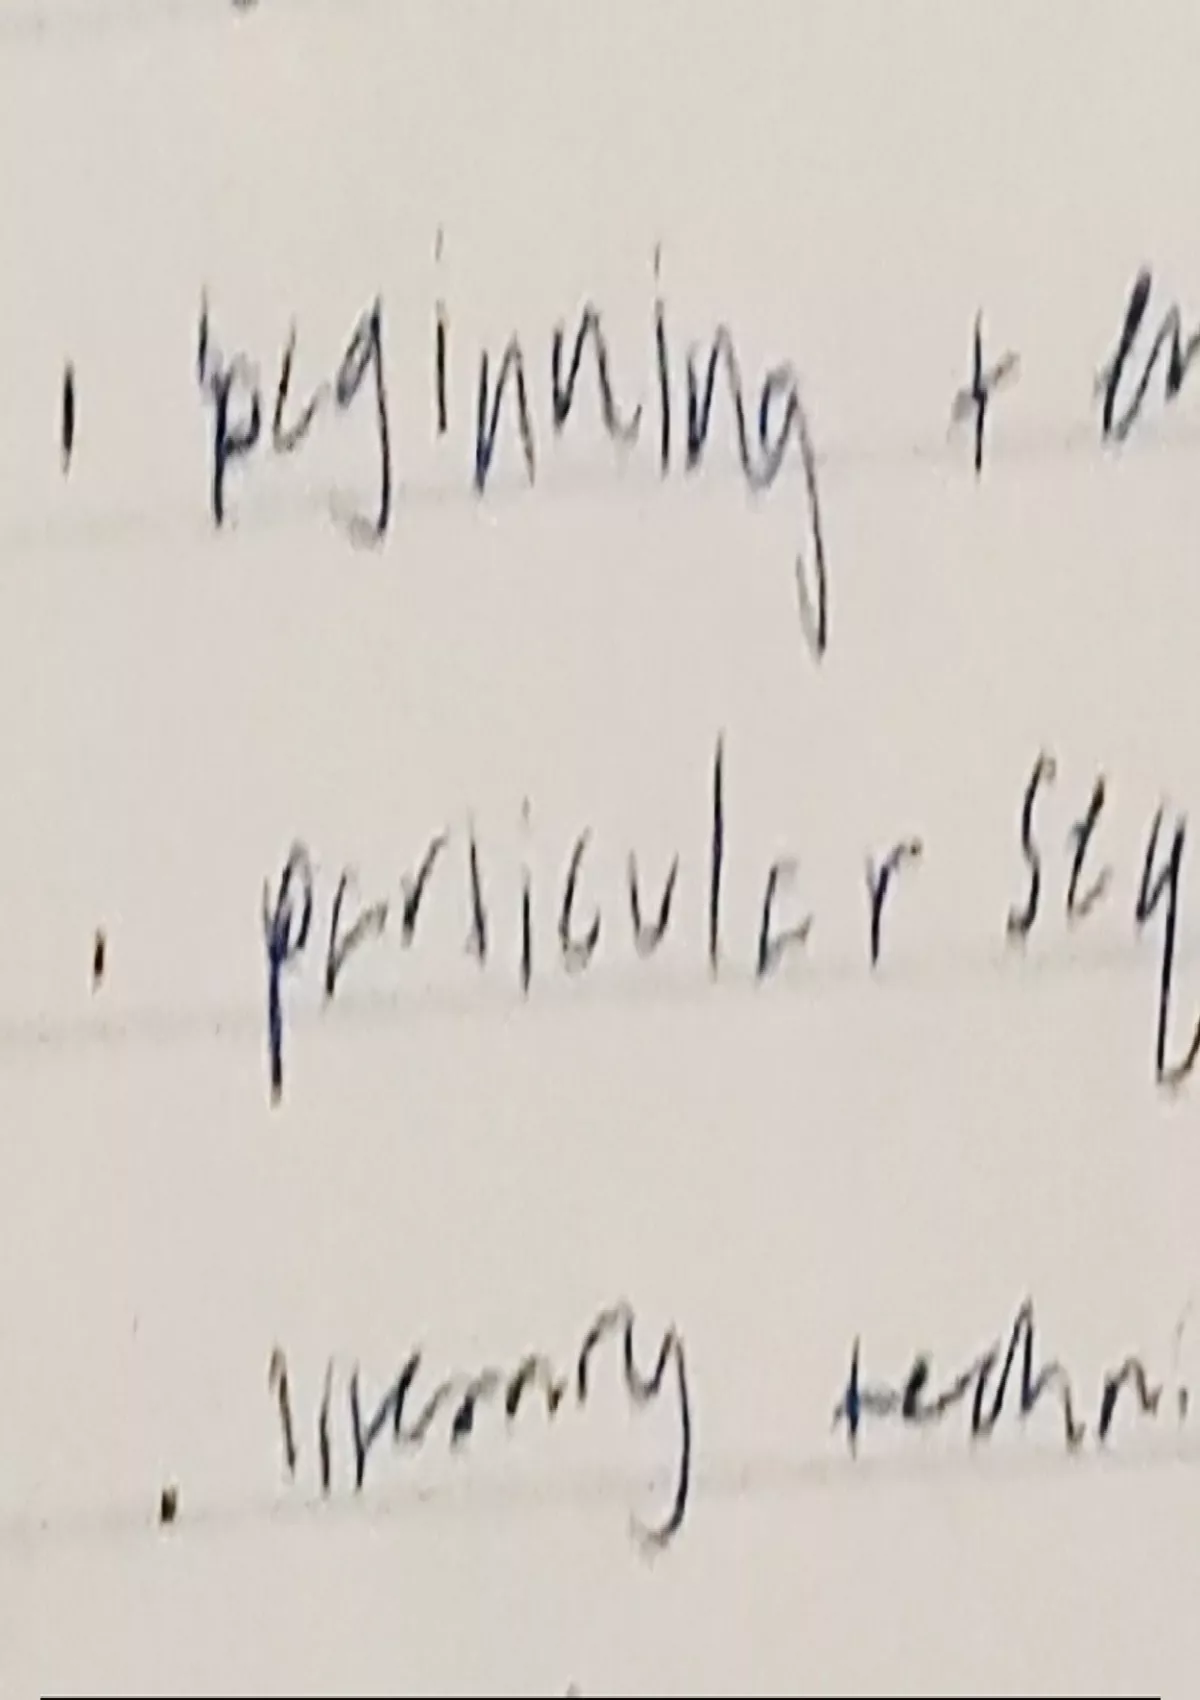 · beginning + en
· particular seq
· literary techni